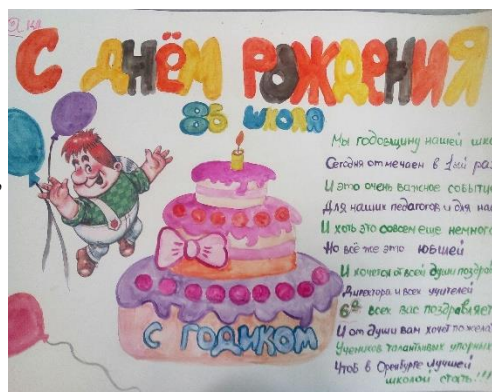 С ДНЁМ РОЖДЕНИЯ
86 ШКОЛА
Мы годовщину нашей
Сегодня отмечаем в 1ый
И это очень важное событие
Для наших педагогов и для
И хоть это совсем еще немного
Но всё же это юбилей
И хочется от всей души
Директора и всех учителей
6а всех вас поздравляет
И от души вам хочет
Учеников талантливых упорных
Чтоб в Оренбурге лучшей
школой стать!!!
С ГОДИКОМ